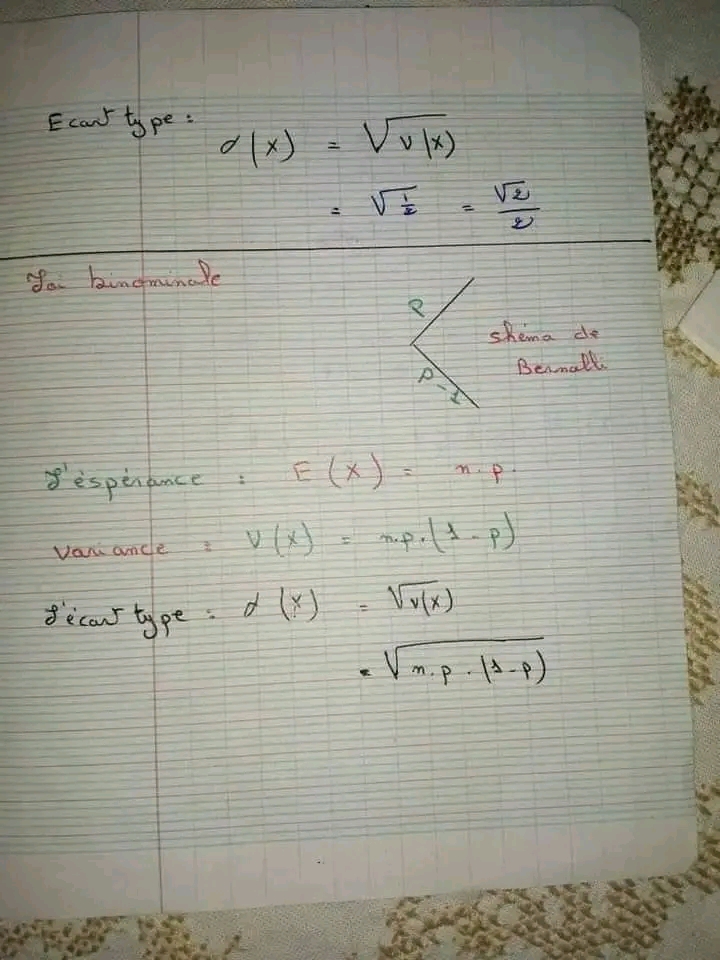 Ecart type :
σ(x) = √v(x)
= √1/2 = √2/2
Loi binominale
P
shéma de
Bernalli
P-1
L'éspérance : E(X) = n.p.
Variance : V(X) = n.p.(1-p)
L'écart type : σ(x) = √v(x)
= √n.p.(1-p)